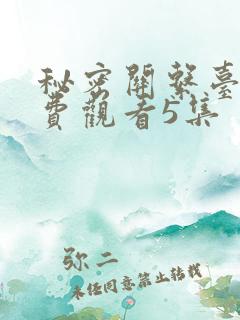 秘密關繫臺
費觀看5集
弥二
未经同意禁止转载